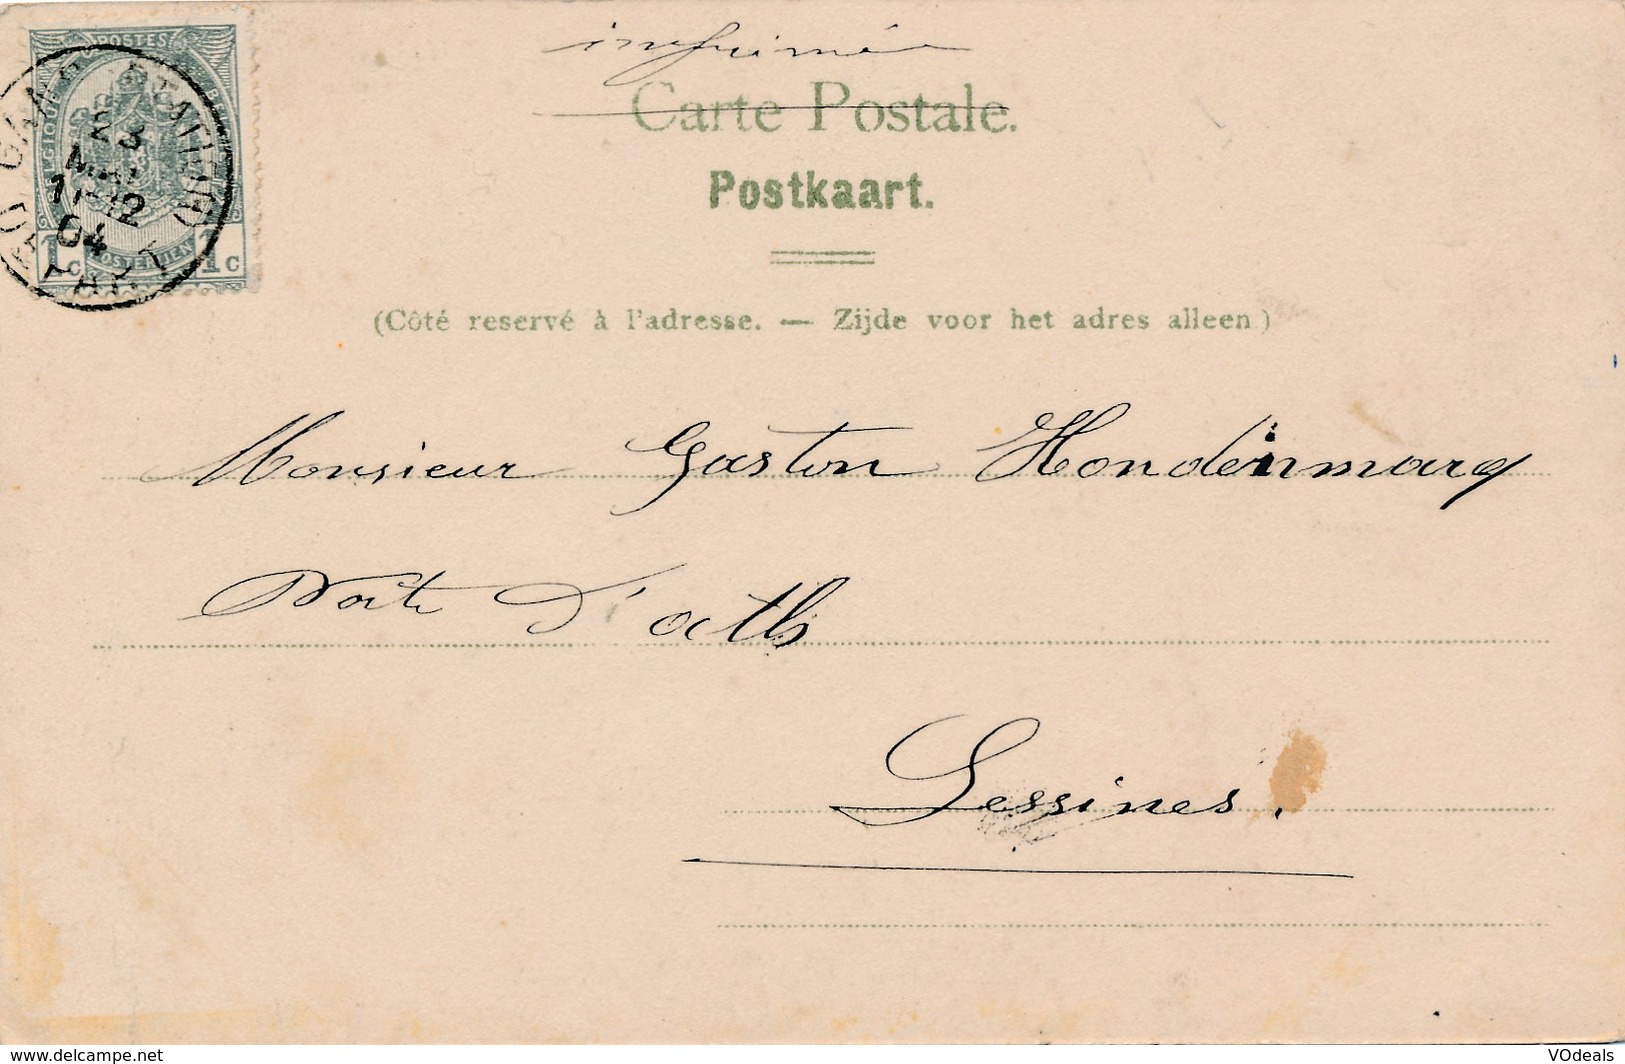 POSTES
23
MAI
11-12
04
1c OSTERIJEN 1c
imprimée
Carte Postale.
Postkaart.
(Côté reservé à l'adresse. — Zijde voor het adres alleen.)
Monsieur Gaston Hondenmarcq
Porte d'ath
Lessines.
www.delcampe.net
VOdeals